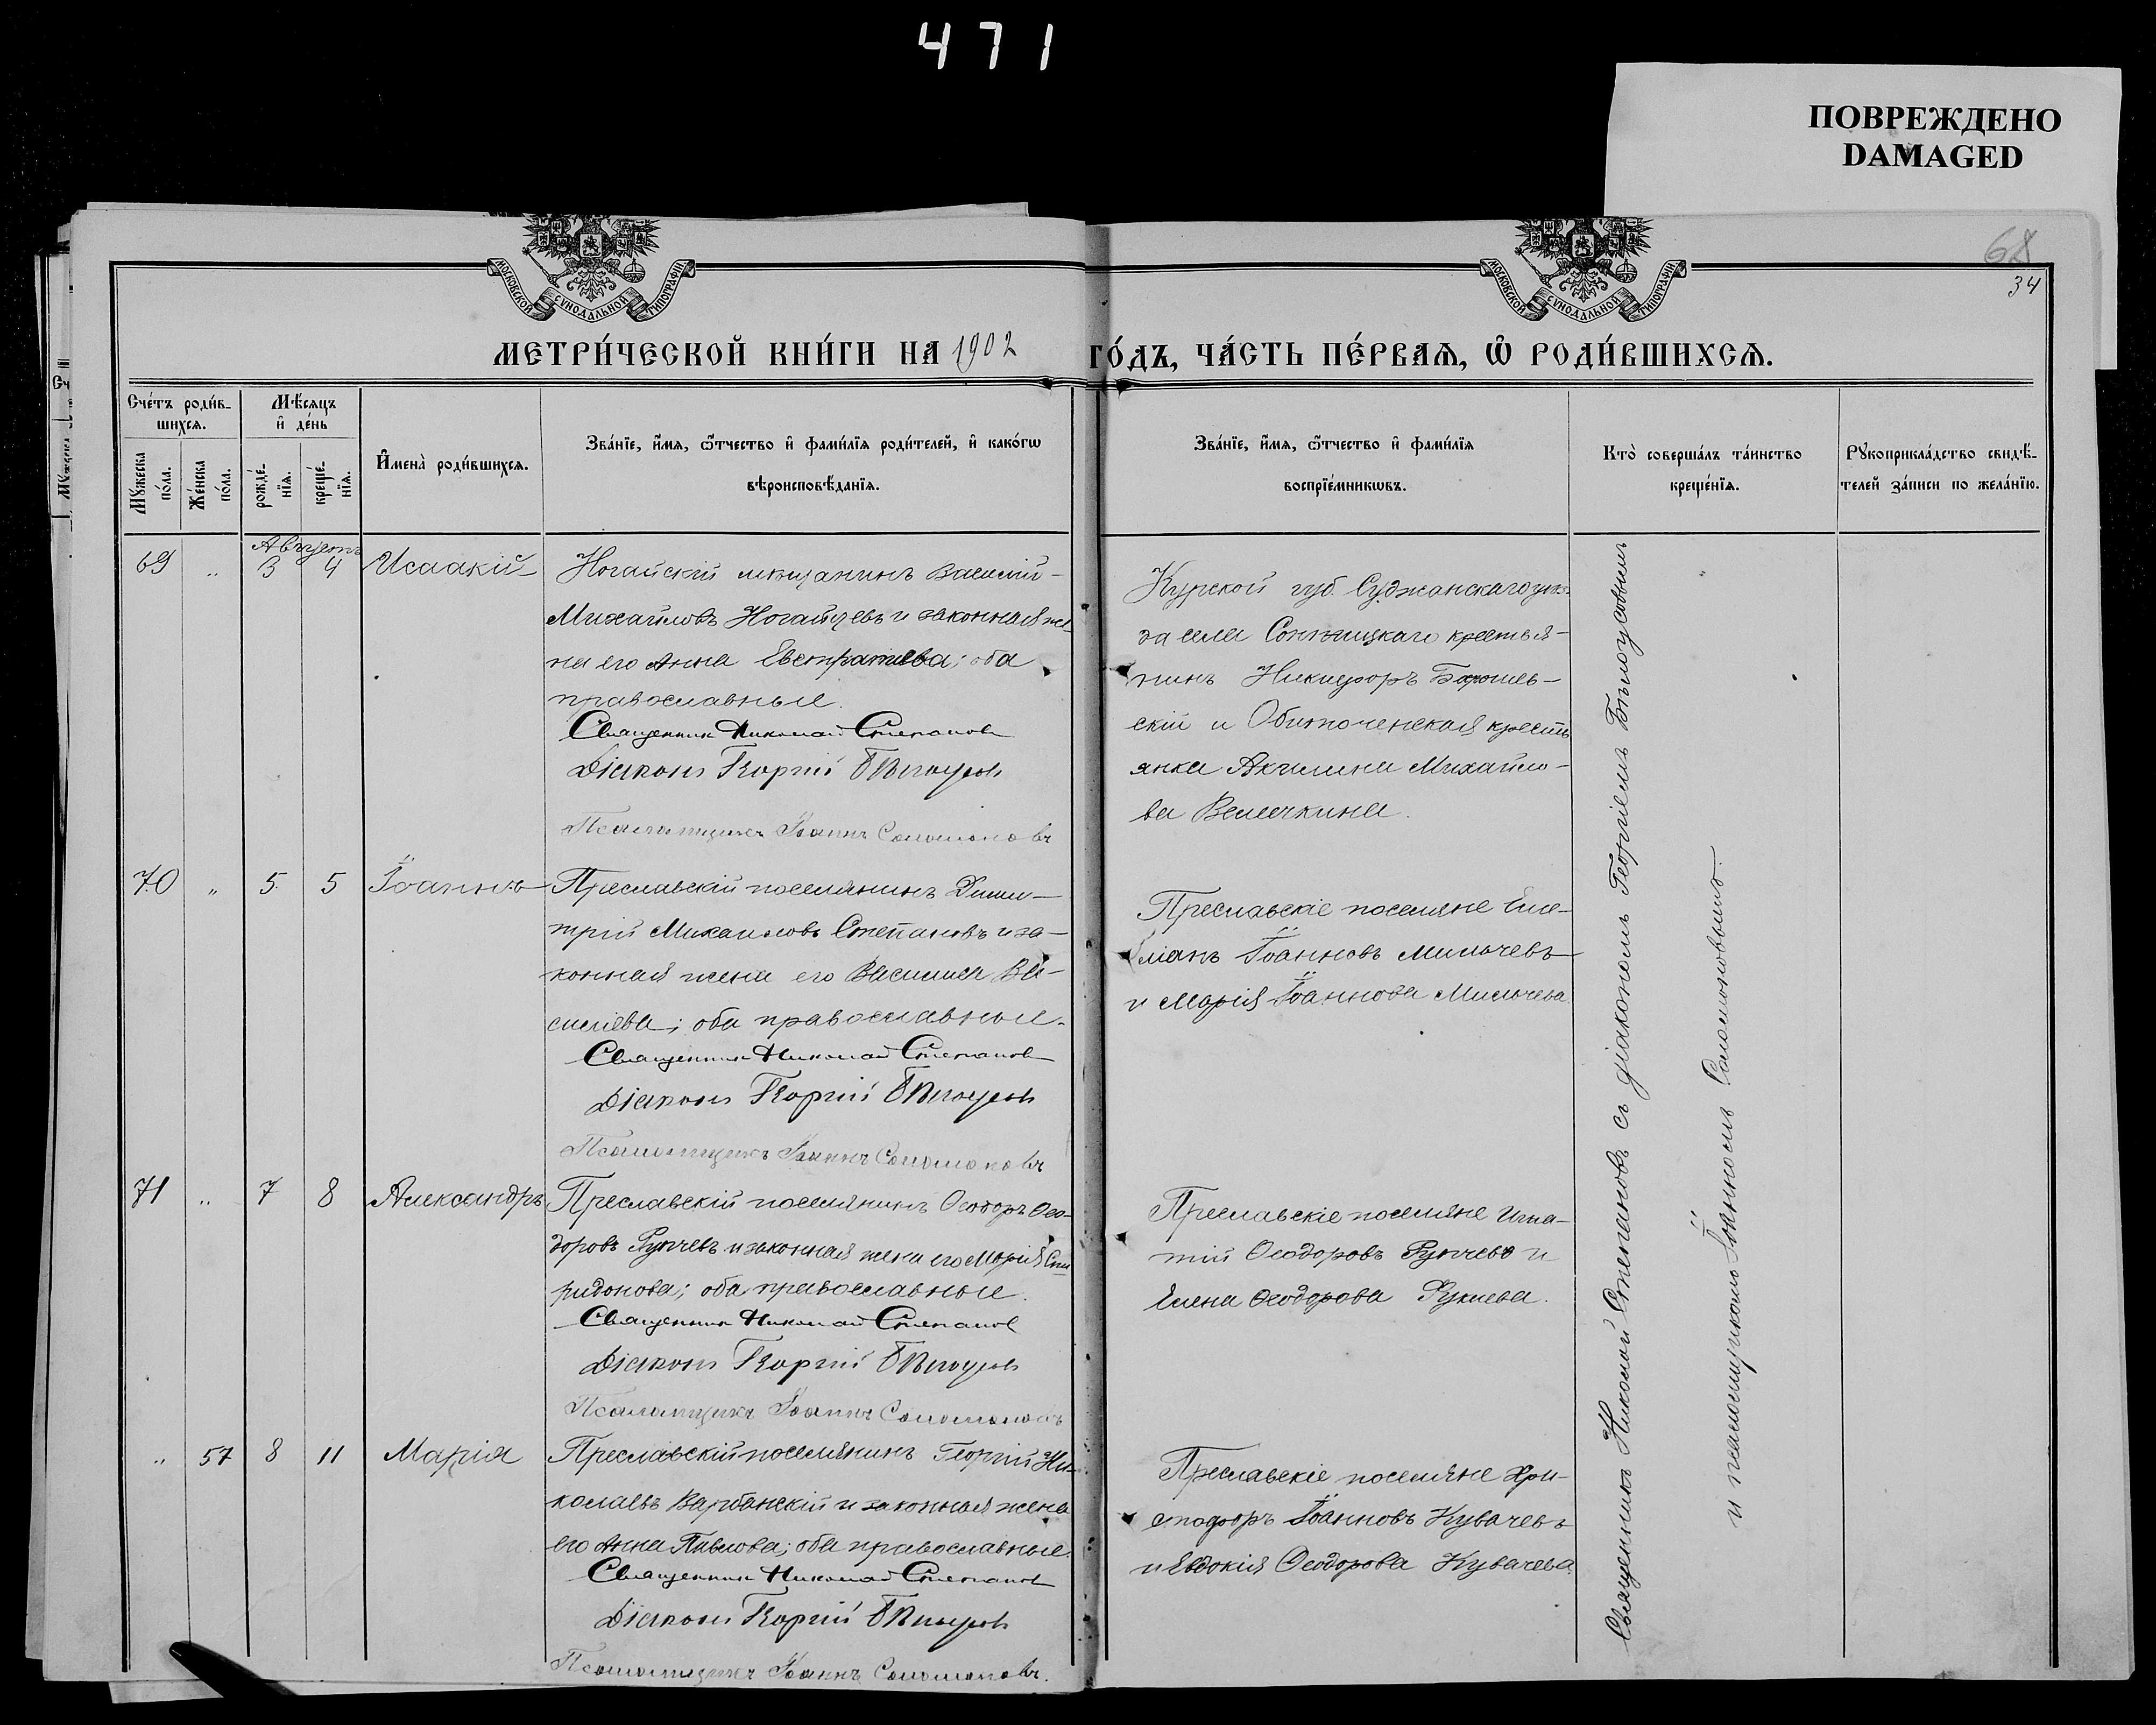 471
ПОВРЕЖДЕНО
DAMAGED
68
34
МОСКОВСКОЙ СѴНОДАЛЬНОЙ ТИПОГРАФІИ
МОСКОВСКОЙ СѴНОДАЛЬНОЙ ТИПОГРАФІИ
МЕТРИ́ЧЕСКОЙ КНИ́ГИ НА 1902 ГО́ДЪ, ЧА́СТЬ ПЕ́РВАѦ, Ѽ РОДИ́ВШИХСѦ.
Сче́тъ роди́в-
шихсѧ.
Мꙋ́жеска по́ла.
Же́нска по́ла.
Мѣ́сяцъ и҆ де́нь
рожде́-
нїѧ.
креще́-
нїѧ.
И҆мена̀ роди́вшихсѧ.
Зва́нїе, и҆́мѧ, ѻ҆́тчество и҆ фами́лїѧ роди́телей, и҆ како́гѡ
вѣроисповѣ́данїѧ.
Зва́нїе, и҆́мѧ, ѻ҆́тчество и҆ фами́лїѧ
воспрїе́мникѡвъ.
Кто̀ соверша́лъ та́инство
креще́нїѧ.
Рꙋкоприкла́дство свидѣ́-
телей за́писи по жела́нїю.
Августъ
69 „ 3 4 Исаакій
Ногайскій мѣщанинъ Василій
Михайловъ Ногайцевъ и законная же-
на его Анна Евстратіева; оба
православные.
Священникъ Николай Степановъ
Діаконъ Георгій Бѣлоусовъ
Псаломщикъ Іоаннъ Соломоновъ
Курской губ. Суджанскаго уѣз-
да села крестья-
нинъ Никифоръ
скій и Обиточенская кресть
янка Акилина Михайло-
ва Величкина.
70 „ 5 5 Іоаннъ
Преславскій поселянинъ Дими-
трій Михаиловъ Степановъ и за-
конная жена его Василиса Ва-
силіева; оба православные.
Священникъ Николай Степановъ
Діаконъ Георгій Бѣлоусовъ
Псаломщикъ Іоаннъ Соломоновъ
Преславскіе поселяне Еме-
ліанъ Іоанновъ Милочевъ
и Марія Іоаннова Милочева
71 „ 7 8 Александръ
Преславскій поселянинъ Ѳеодоръ Ѳео-
доровъ Рупчевъ и законная жена его Марія Спи-
ридонова; оба православные.
Священникъ Николай Степановъ
Діаконъ Георгій Бѣлоусовъ
Псаломщикъ Іоаннъ Соломоновъ
Преславскіе поселяне Игна-
тій Ѳеодоровъ Рупчевъ и
Елена Ѳеодорова
„ 57 8 11 Марія
Преславскій поселянинъ Георгій Ни-
колаевъ Варбанскій и законная жена
его Анна Павлова; оба православные.
Священникъ Николай Степановъ
Діаконъ Георгій Бѣлоусовъ
Псаломщикъ Іоаннъ Соломоновъ.
Преславскіе поселяне Хри-
стофоръ Іоанновъ Кувачевъ
и Евдокія Ѳеодорова Кувачева
Священникъ Николай Степановъ съ діакономъ Георгіемъ Бѣлоусовымъ
и псаломщикомъ Іоанномъ Соломоновымъ.